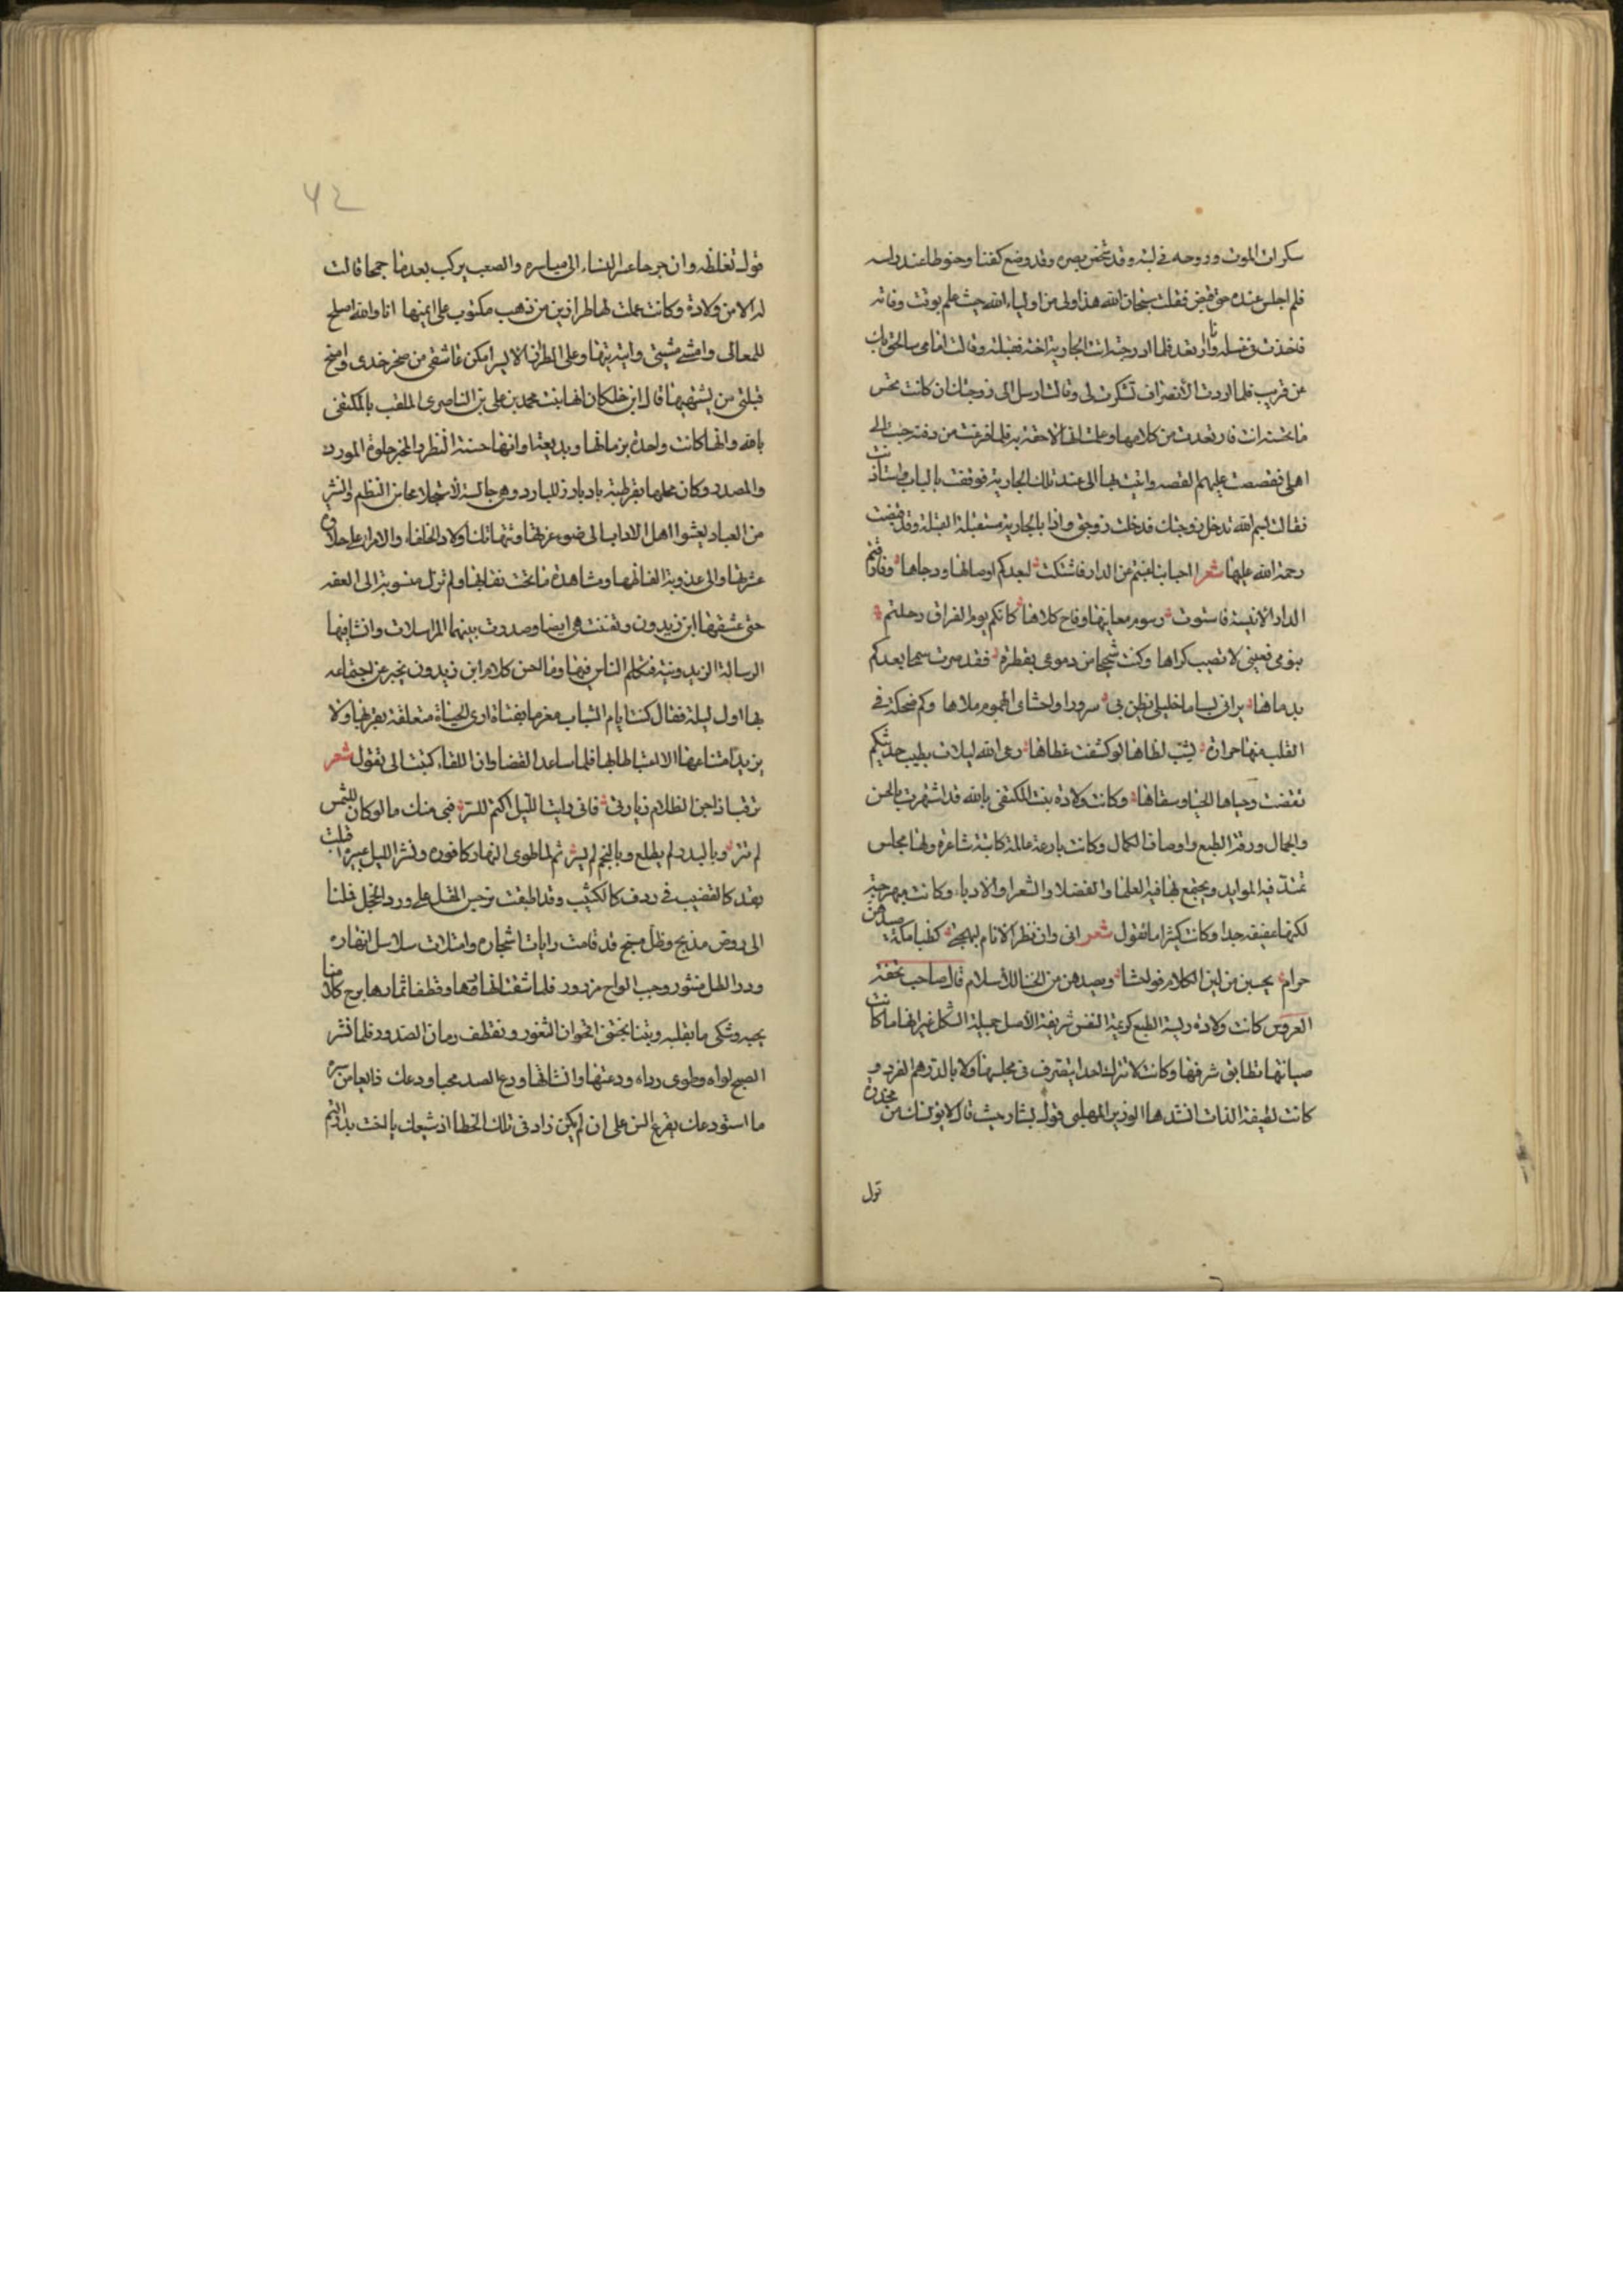 سكرات الموت وروحه في لبته وقد شخص بصره وقد وضع كفنا وحنوطا عند راسه
فلم اجلس عنده حتى قبض فقلت سبحان الله هذا ولي من اولياء الله حيث علم بوقت وفاته
فاخذت في غسله وانا ارتعد فلما ادرجته اتت الجارية اخته فقبلته وقالت اما اني سالحق بك
عن قريب فلما اردت الانصراف تشكرت لي وقالت ارسل الى زوجتك ان كانت تحسن
ما تحسنه انت فارتعدت من كلامها وعلمت انها لاحقة به فلما فرغت من دفنه جئت الى
اهلي فقصصت عليهم القصه واتيت بها الى عند تلك الجارية فوقفت بالباب واستأذنت
فقالت بسم الله تدخل زوجتك فدخلت زوجتي واذا بالجارية مستقبلة القبلة وقد قضت
رحمة الله عليها شعر احبابنا غبتم عن الدار فاشتكت لبعدكم اوصالها ورجاها وفارقتم
الدار الانيسة فاستوت رسوم معانيها وفاح كلاها كانكم يوم الفراق رحلتم
بنومي فعيني لا تصيب كراها وكنت شحيحا من دموعي بقطرة فقد صرت سمحا بعدكم
بدماها يراني بساما خليلي يظن بي سرورا واحشاي الهموم ملاها وكم ضحكة في
القلب منها حرارة يشب لظاها لو كشفت غطاها رعى الله ليلات بطيب حديثكم
تقضت وحياها الحيا وسقاها وكانت ولادة بنت المكتفي بالله قد اشتهرت بالحسن
والجمال ورقة الطبع واوصاف الكمال وكانت بارعة عالمة كاتبة شاعرة ولها مجلس
تمتد فيه الموايد ويجتمع بها فيه العلما والفضلا والشعرا والادباء وكانت مهرجية
لكنها عفيفه جدا وكانت كثيرا ما تقول شعر اني وان نظر الانام لبهجتي كظبا مكة صيدهن
حرام يحسبن من لين الكلام فواحشا ويصدهن من الخنا الاسلام قال صاحب تحفة
العروس كانت ولادة ريسة الطبع كريمة النفس شريفة الاصل جميلة الشكل غير انها ما كانت
صيانتها تطابق شرفها وكانت لا تترك احدا يتقترف في مجلسها ولا بالدرهم الفرد و
كانت لطيفة الذات انشدها الوزير المهلبي قول بشار حيث قال لا يؤيسنك من مخدرة
قول
قول تغلظه وان جرحا عسر النساء الى مياسره والصعب يركب بعد ما جمحا قالت
له الا من ولادة وكانت عملت لها طرازين من ذهب مكتوب على ايمنها انا والله اصلح
للمعالي وامشي مشيتي واتيه تيها وعلى الطراز الايسر امكن عاشقي من صحن خدي وامنح
قبلتي من يشتهيها قال ابن خلكان انها بنت محمد بن علي بن الناصري الملقب بالمكتفى
بالله وانها كانت واحدة بزمانها وبديعتها وانها حسنة النظر والمخبر حلوة المورد
والمصدر وكان محلها بقرطبة
من العباد يعشوا اهل الاداب الى ضوء غرتها وتتهالك اولاد الخلفاء والامرا على حلاوة
عشرتها والى عذوبة الفاظها ومشاهدة ما تحت نقابها ولم تزل منسوبة الى العفه
حتى عشقها ابن زيدون وتفتنت هي ايضا وصدرت بينهما المراسلات وانشا فيها
الرسالة الزيدونية فتكلم الناس فيها وما احسن كلام ابن زيدون يخبر عن اجتماعه
بها اول ليلة فقال كنت ايام الشباب مغرما بفتاة ارى الحياة متعلقة بقربها ولا
يزيد امتناعها الا اغتباطا بها فلما ساعد القضا وان اللقاء كتبت الى تقول شعر
ترقب اذا جن الظلام زيارتي فاني رايت الليل اكتم للسر فبي منك ما لو كان للشمس
لم تنر وبالبدر لم يطلع وبالنجم لم يسر ثم لما طوى النهار كافوره ونشر الليل عبيره اقبلت
بقد كالقضيب في ردف كالكثيب وقد اطبقت نرجس المقل على ورد الخجل فملنا
الى روض مدبج وظل سجسج قد قامت رايات اشجاره وامتلات سلاسل انهاره
ودر الطل منثور وجيب الراح مزرور فلما شققنا انهارها وقطفنا ثمارها برح كل منا
بحبه وشكى ما بقلبه وبتنا نجتني اقحوان الثغور ونقطف رمان الصدور فلما نشر
الصبح لواه وطوى رداه ودعتها وانشاتها ودع الصبر محب ودعك ذايعا من سره
ما استودعك يقرع السن على ان لم يكن زاد في تلك الخطا اذ شيعك يا اخت بدر التم